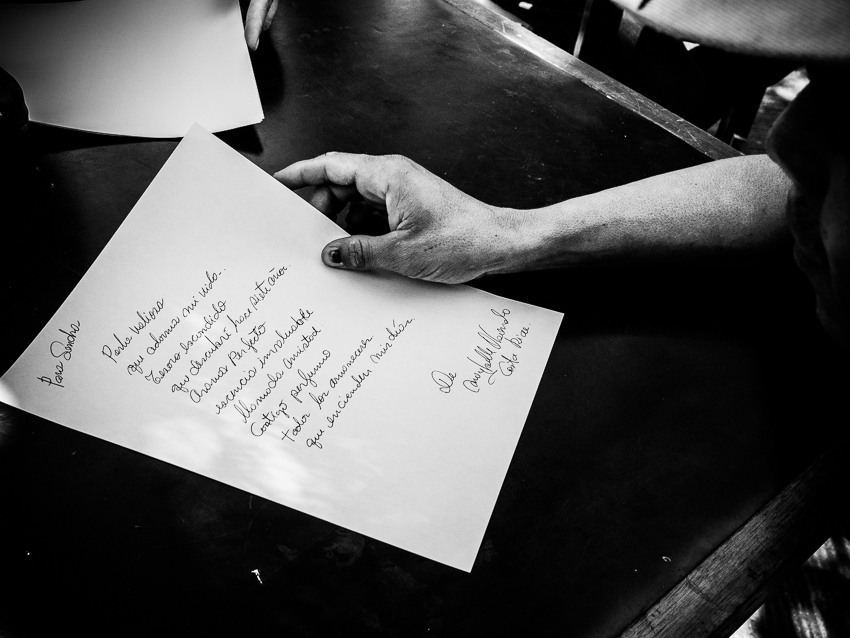 Para Sencha
Perla valiosa
que adorna mi vida..
Tesoro escondido
que descubrí hace siete años.
Aroma Perfecto
esencia invaluable
llamada amistad
Contigo perfumo
todos los amaneceres
que encienden mis días.
De
Costa Rica